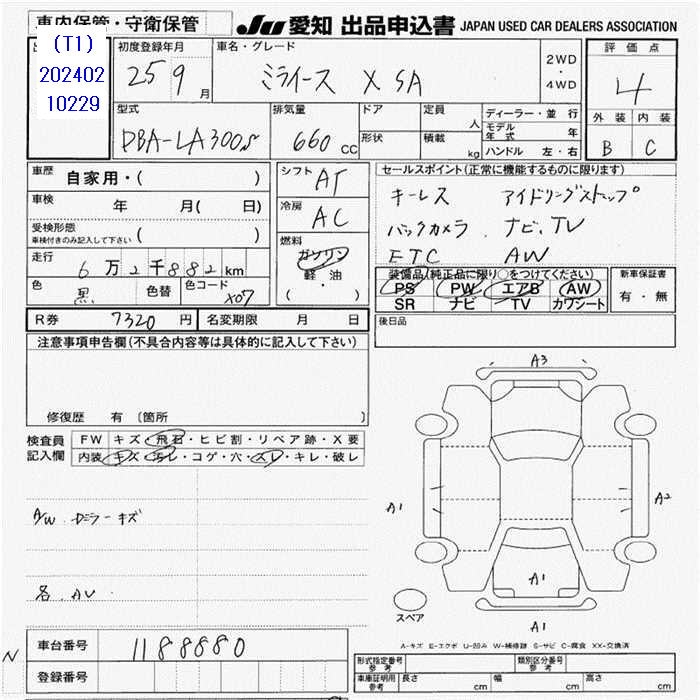 車内保管・守衛保管
JU 愛知 出品申込書 JAPAN USED CAR DEALERS ASSOCIATION
(T1)
202402
10229
初度登録年月
25 9 月
車名・グレード
ミライース X SA
2WD
・
4WD
評価点
4
外装 内装
B C
型式
DBA-LA300S
排気量
660 cc
ドア
形状
定員 人
積載 kg
ディーラー・並行
モデル年式 年
ハンドル 左・右
車歴 自家用・( )
車検 年 月( 日)
受検形態
車検付きのみ記入して下さい ( )
走行 6万2千882km
色 黒 色替 色コード X07
シフト AT
冷房 AC
燃料
ガソリン
軽・油
( ・ )
セールスポイント(正常に機能するものに限ります)
キーレス アイドリングストップ
バックカメラ ナビ、TV
ETC AW
装備品(純正品に限り○をつけてください)
PS PW エアB AW
SR ナビ TV カワシート
新車保証書
有・無
R券 7320 円 名変期限 月 日
後日品
注意事項申告欄(不具合内容等は具体的に記入して下さい)
修復歴 有 〔箇所 〕
検査員
記入欄
FW キズ・飛石・ヒビ割・リペア跡・X要
内装 キズ・汚レ・コゲ・穴・スレ・キレ・破レ
A/W キズ
各 AU
A3
A1
A2
A1
A1
スペア
A-キズ E-エクボ U-凹み W-補修跡 S-サビ C-腐食 XX-交換済
N
車台番号 1188880
登録番号
形式指定番号
参考
類別区分番号
参考
車庫証明用
参考
長さ cm 幅 cm 高さ cm